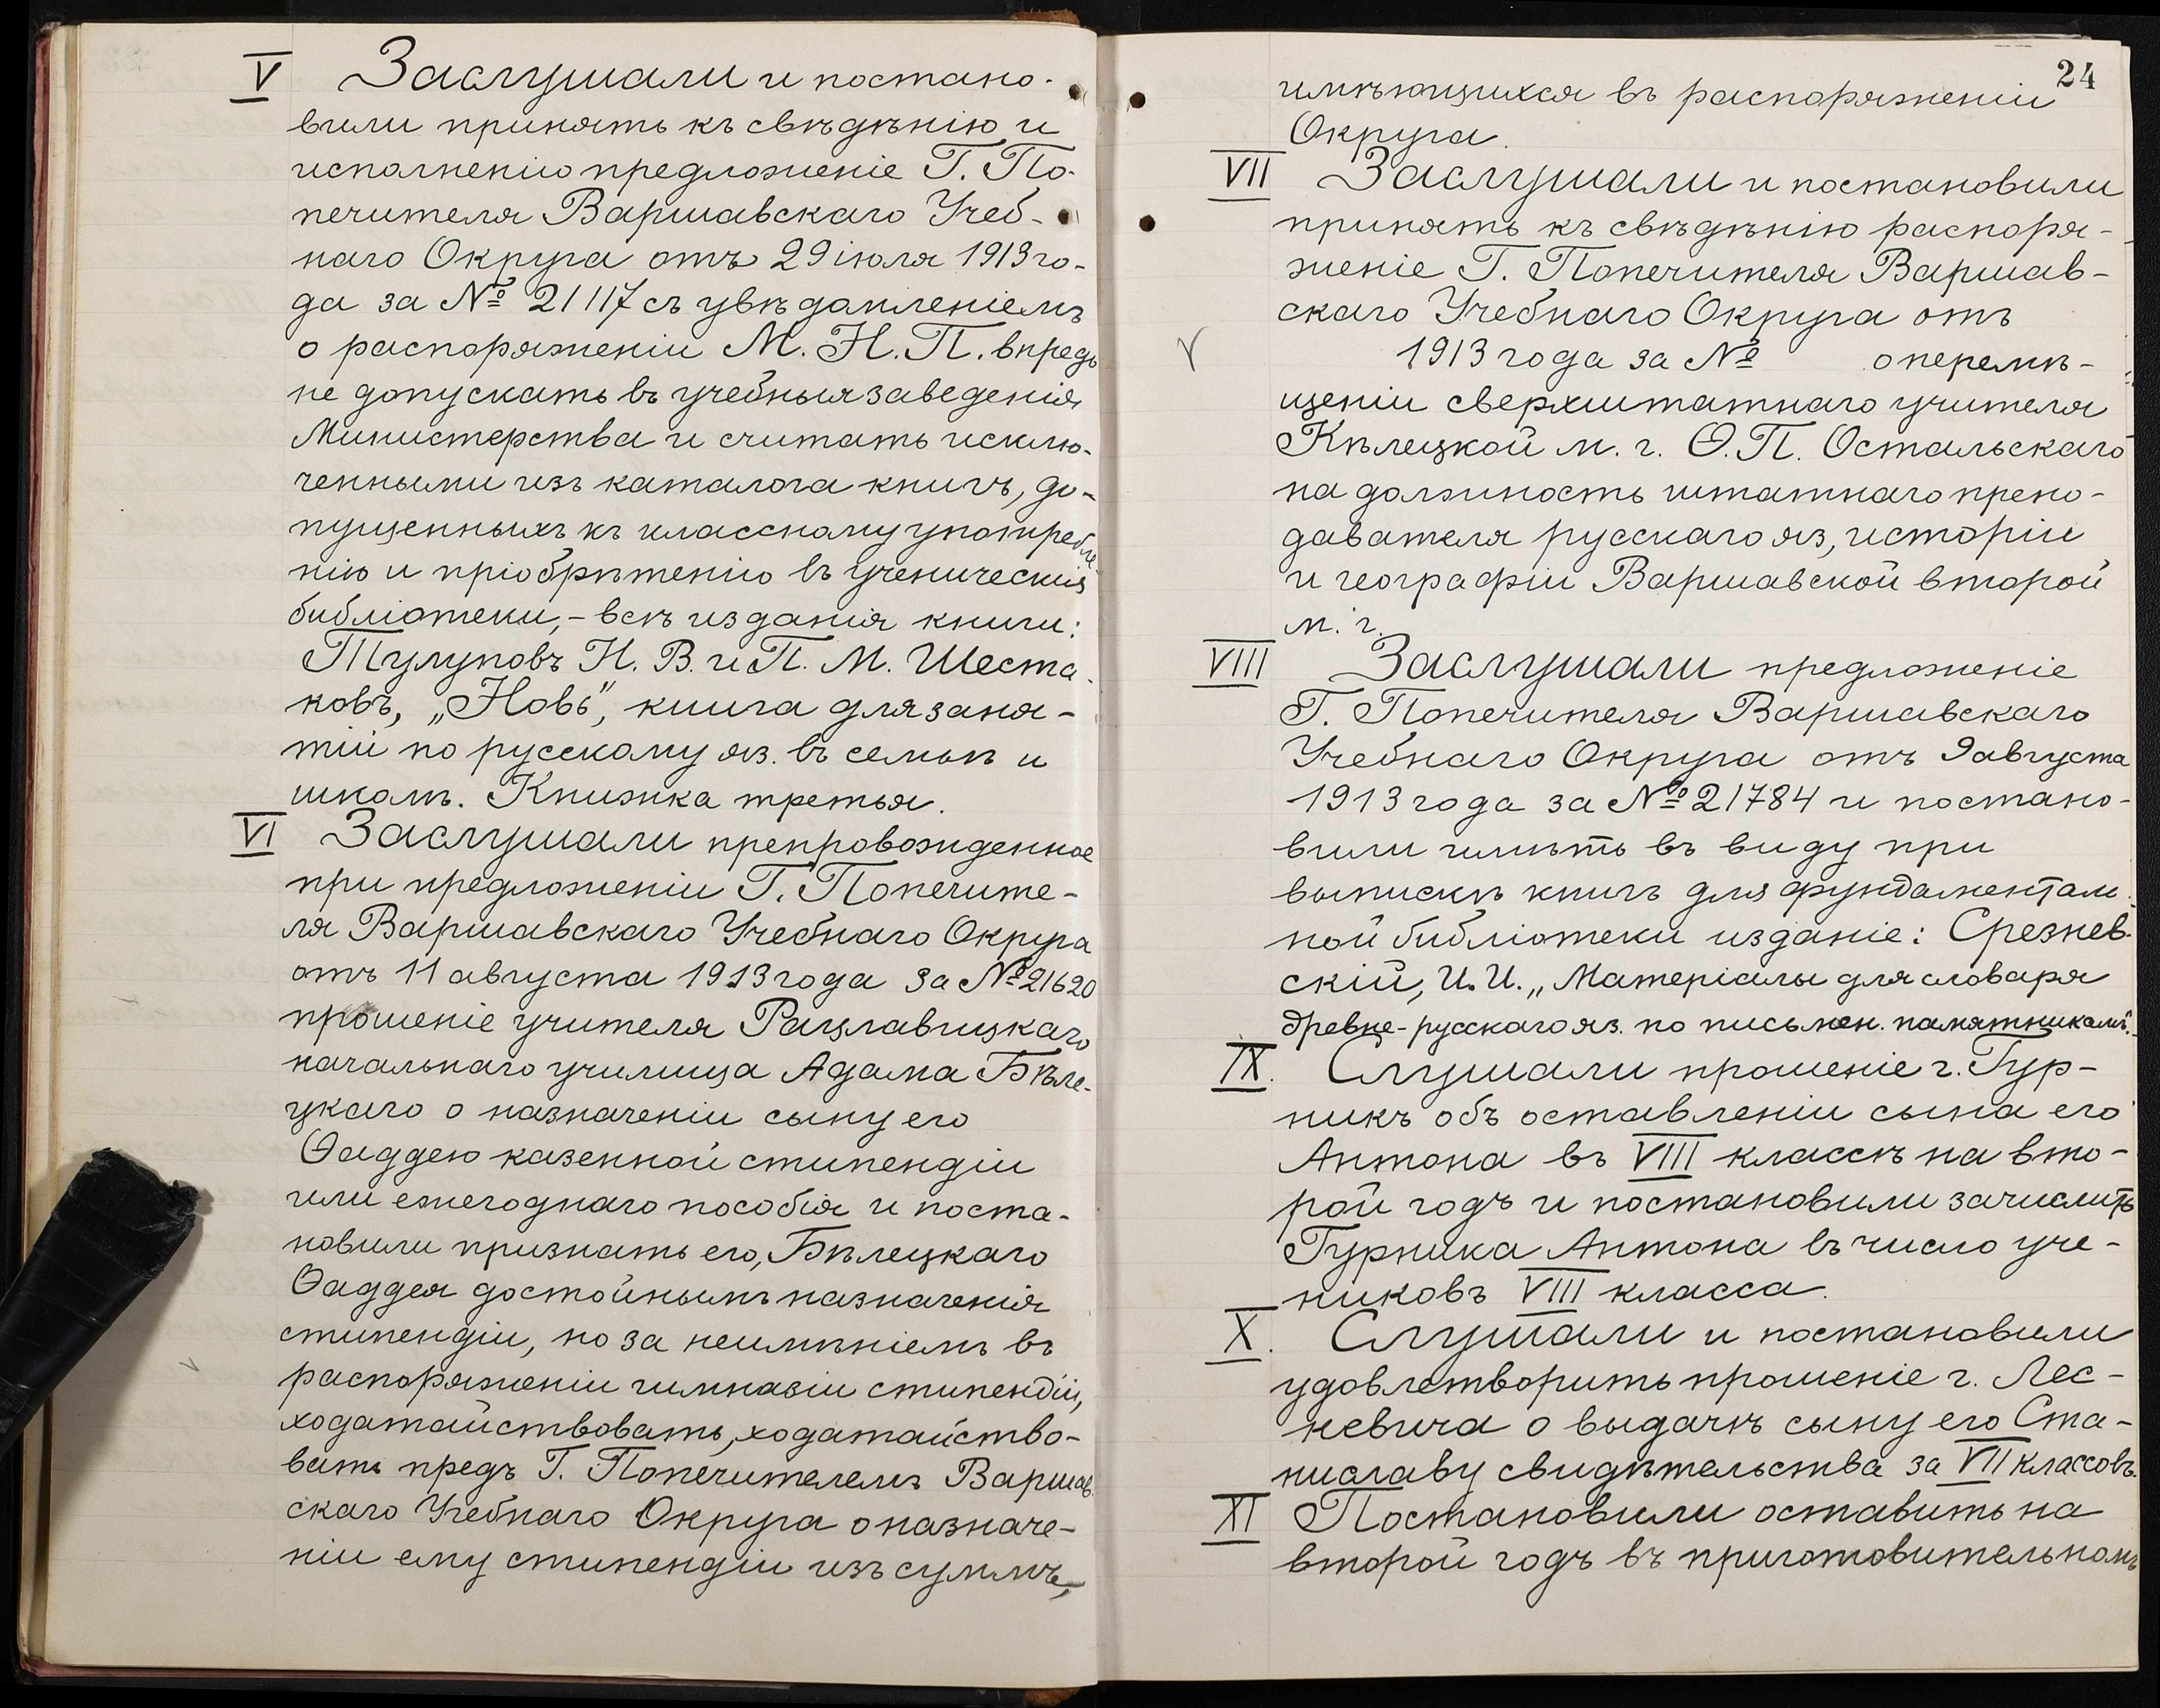 V Заслушали и постано-
вили принять къ свѣдѣнію и
исполненію предложеніе Г. По-
печителя Варшавскаго Учеб-
наго Округа отъ 29 іюля 1913 го-
да за № 21117 съ увѣдомленіемъ
о распоряженіи М. Н. П. впредь
не допускать въ учебныя заведенія
Министерства и считать исклю-
ченными изъ каталога книгъ, до-
пущенныхъ къ классному употребле-
нію и пріобрѣтенію въ ученическія
библіотеки,- всѣ изданія книги:
Тулуповъ Н. В. и П. М. Шеста-
ковъ, „Новь", книга для заня-
тій по русскому яз. въ семьѣ и
школѣ. Книжка третья.
VI Заслушали препровожденное
при предложеніи Г. Попечите-
ля Варшавскаго Учебнаго Округа
отъ 11 августа 1913 года за № 21620
прошеніе учителя Рацлавицкаго
начальнаго училища Адама Бѣле-
цкаго о назначеніи сыну его
Ѳаддею казенной стипендіи
или ежегоднаго пособія и поста-
новили признать его, Бѣлецкаго
Ѳаддея достойнымъ назначенія
стипендіи, но за неимѣніемъ въ
распоряженіи гимназіи стипендіи,
ходатайствовать, ходатайство-
вать предъ Г. Попечителемъ Варшав-
скаго Учебнаго Округа о назначе-
ніи ему стипендіи изъ суммъ,
24
имѣющихся въ распоряженіи
Округа.
VII Заслушали и постановили
принять къ свѣдѣнію распоря-
женіе Г. Попечителя Варшав-
скаго Учебнаго Округа отъ
1913 года за № о перемѣ-
щеніи сверхштатнаго учителя
Кѣлецкой м. г. Ѳ. П. Остальскаго
на должность штатнаго препо-
давателя русскаго яз, исторіи
и географіи Варшавской второй
м. г.
VIII Заслушали предложеніе
Г. Попечителя Варшавскаго
Учебнаго Округа отъ 9 августа
1913 года за № 21784 и постано-
вили имѣть въ виду при
выпискѣ книгъ для фундаменталь-
ной библіотеки изданіе: Срезнев-
скій, И. И. „Матеріалы для словаря
древне-русскаго яз. по письмен. памятникамъ".
IX. Слушали прошеніе г. Гур-
никъ объ оставленіи сына его
Антона въ VIII классѣ на вто-
рой годъ и постановили зачислить
Гурника Антона въ число уче-
никовъ VIII класса.
X. Слушали и постановили
удовлетворить прошеніе г. Лес-
невича о выдачѣ сыну его Ста-
ниславу свидѣтельства за VII классовъ.
XI Постановили оставить на
второй годъ въ приготовительномъ